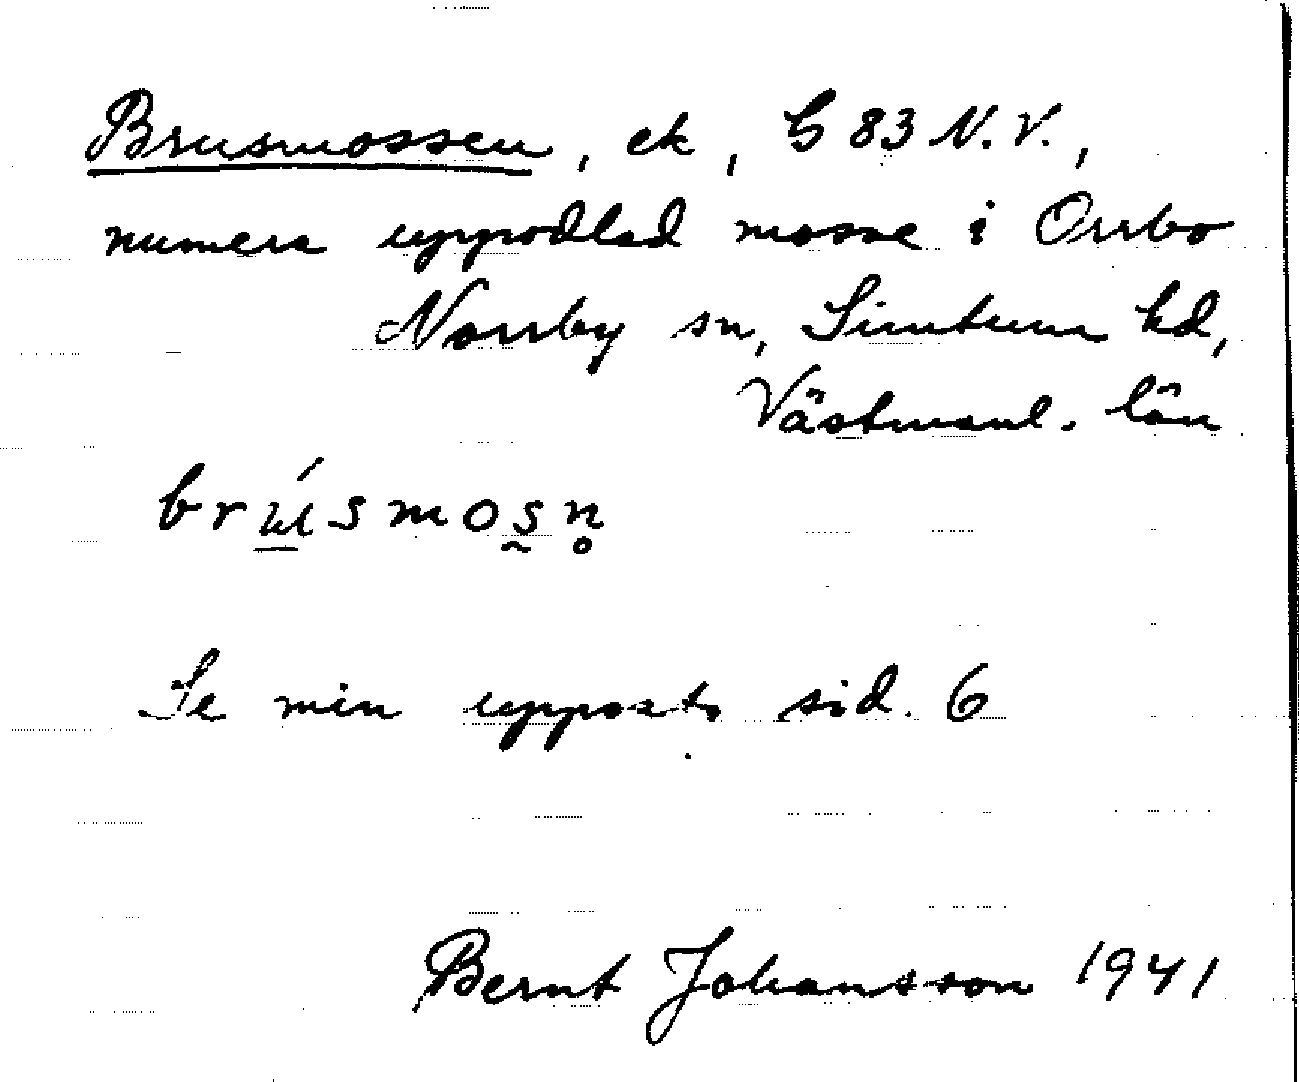 Brusmossen, ek, G 83 N.V.,
numera uppodlad mosse i Orrbo
Norrby sn, Simtuna hd,
Västmanl. län
brúsmosn̥
Se min uppsats sid. 6
Bernt Johansson 1941